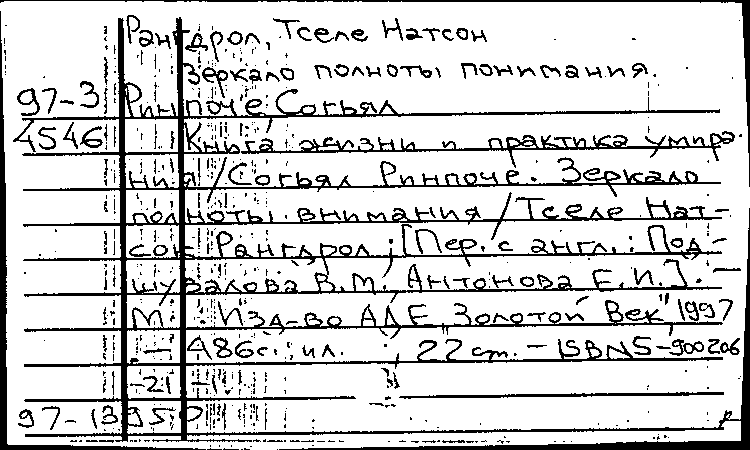 Рангдрол, Тселе Натсок
Зеркало полноты понимания.
97-3 Ринпоче Согьял
4546 Книга жизни и практика умира-
ния / Согьял Ринпоче. Зеркало
полноты внимания / Тселе Нат-
сок Рангдрол ; [Пер. с англ.: Под-
шувалова В.М., Антонова Е.И.]. —
М. : Изд-во АДЕ „Золотой Век", 1997
. — 486с.: ил. ; 22 cm. — ISBN 5-900206
-21-1.
97-13950